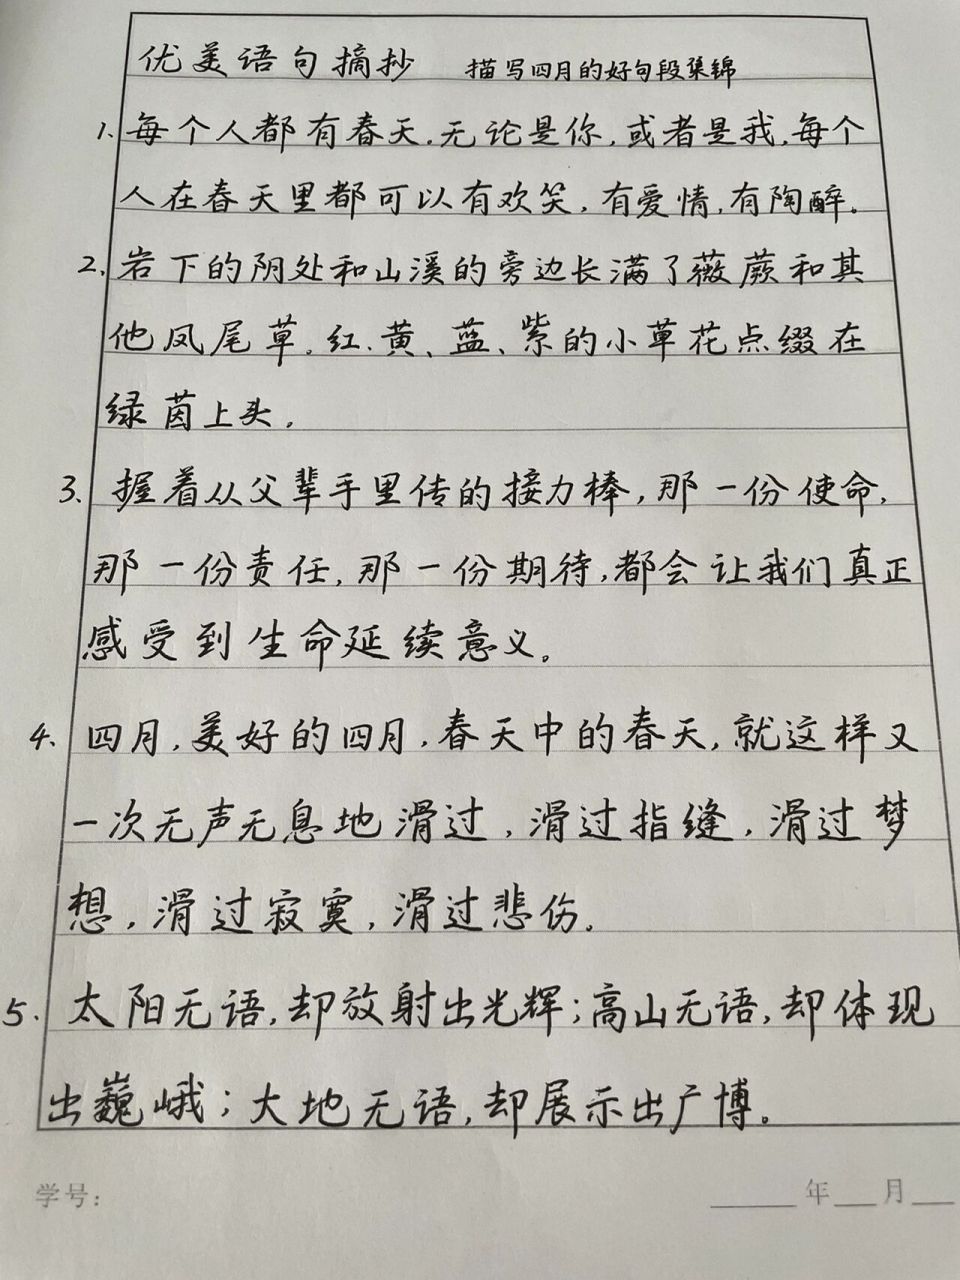 优美语句摘抄 描写四月的好句段集锦
1. 每个人都有春天。无论是你，或者是我，每个
人在春天里都可以有欢笑，有爱情，有陶醉。
2. 岩下的阴处和山溪的旁边长满了薇蕨和其
他凤尾草。红、黄、蓝、紫的小草花点缀在
绿茵上头。
3. 握着从父辈手里传的接力棒，那一份使命，
那一份责任，那一份期待，都会让我们真正
感受到生命延续意义。
4. 四月，美好的四月，春天中的春天，就这样又
一次无声无息地滑过，滑过指缝，滑过梦
想，滑过寂寞，滑过悲伤。
5. 太阳无语，却放射出光辉；高山无语，却体现
出巍峨；大地无语，却展示出广博。
学号： 年 月